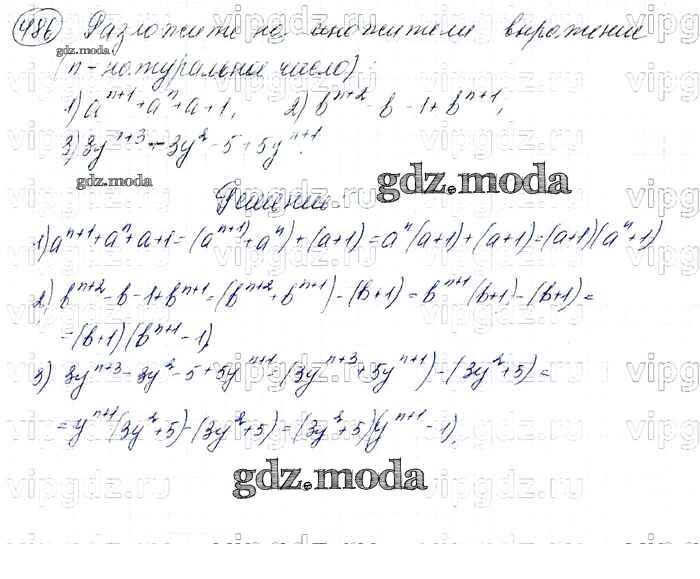 486 Разложите на множители выражение
gdz.moda
(n - натуральное число):
1) aⁿ⁺¹+aⁿ+a+1, 2) bⁿ⁺²-b-1+bⁿ⁺¹,
3) 3yⁿ⁺³-3y²-5+5yⁿ⁺¹.
gdz.moda
gdz.moda
Решение
1) aⁿ⁺¹+aⁿ+a+1=(aⁿ⁺¹+aⁿ)+(a+1)=aⁿ(a+1)+(a+1)=(a+1)(aⁿ+1)
2) bⁿ⁺²-b-1+bⁿ⁺¹=(bⁿ⁺²+bⁿ⁺¹)-(b+1)=bⁿ⁺¹(b+1)-(b+1)=
-(b+1)(bⁿ⁺¹-1)
3) 3yⁿ⁺³-3y²-5+5yⁿ⁺¹=(3yⁿ⁺³+5yⁿ⁺¹)-(3y²+5)=
=yⁿ⁺¹(3y²+5)-(3y²+5)=(3y²+5)(yⁿ⁺¹-1).
gdz.moda
vipgdz.ru